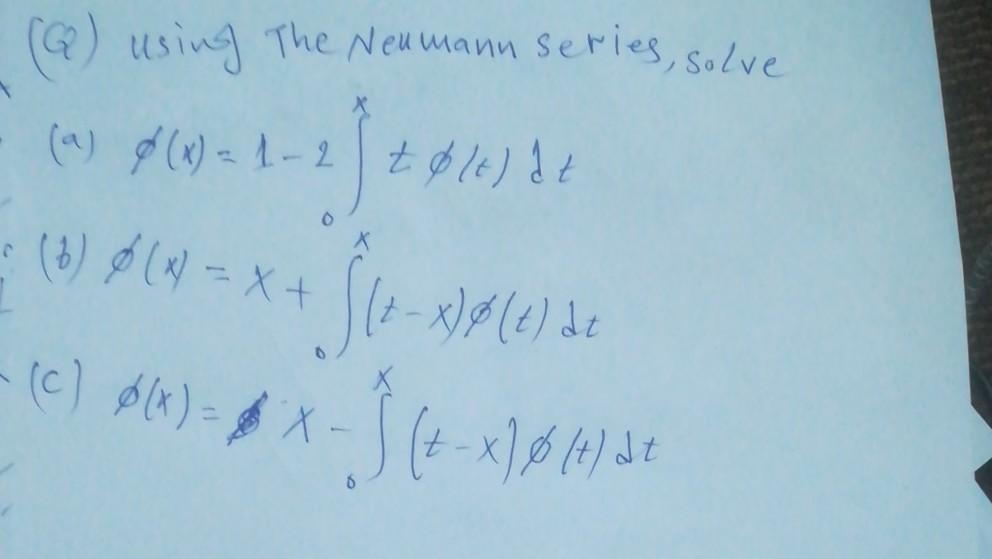 (Q) using The Neumann series, solve
(a) ϕ(x) = 1 - 2 ∫₀ˣ t ϕ(t) dt
(b) ϕ(x) = x + ∫₀ˣ (t-x) ϕ(t) dt
(c) ϕ(x) = x - ∫₀ˣ (t-x) ϕ(t) dt